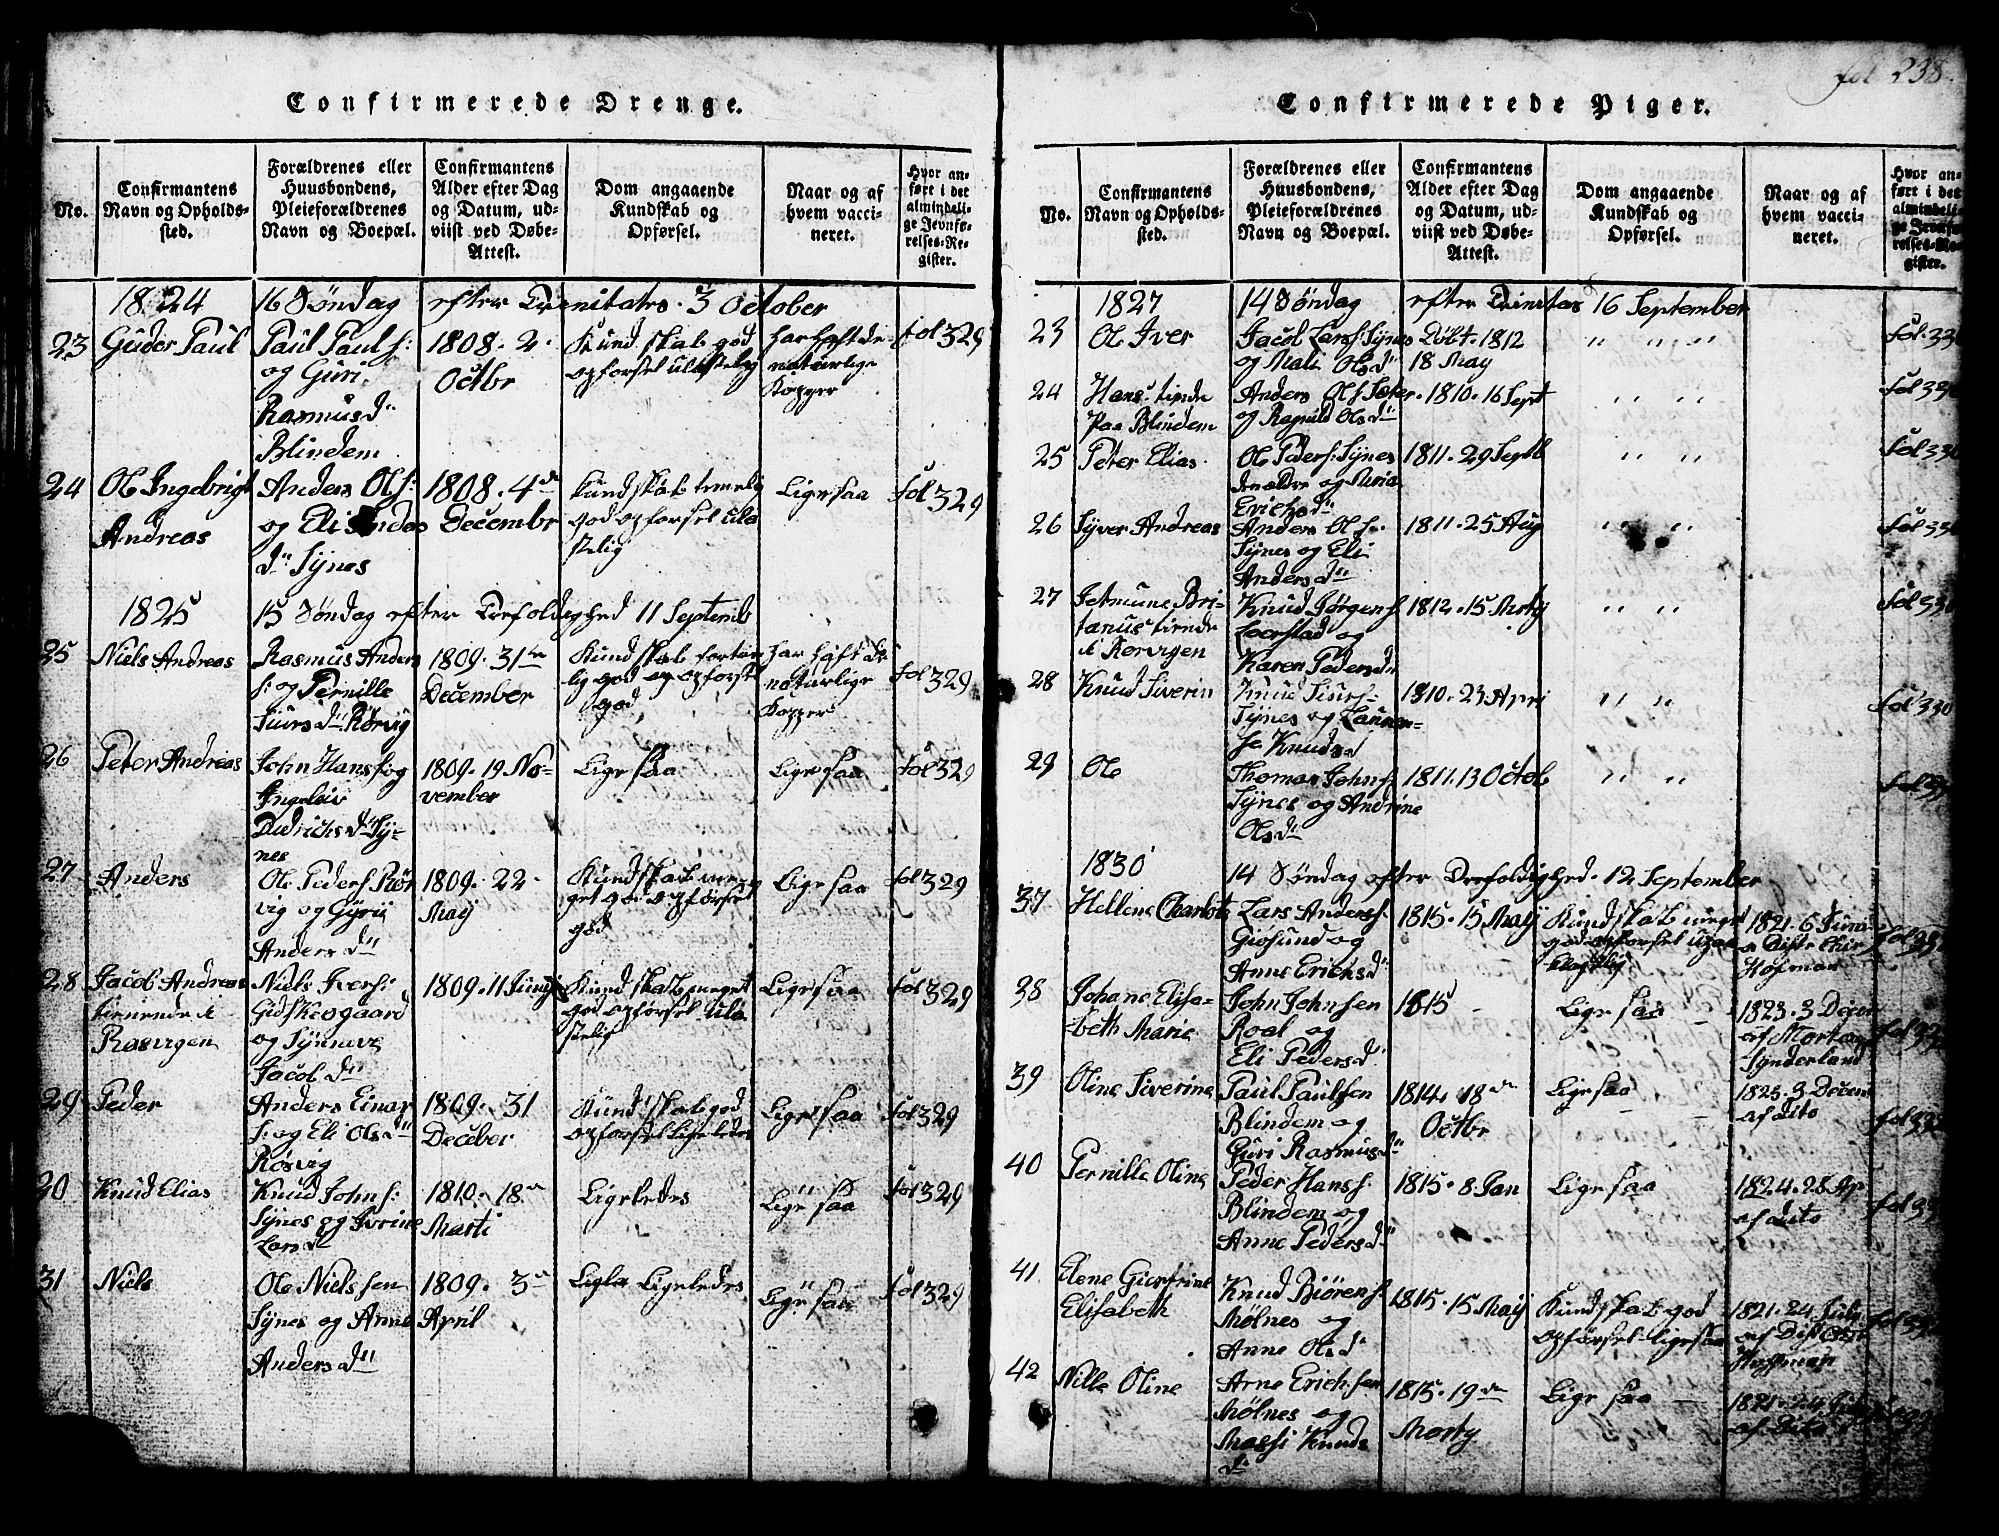 fol 238.
Confirmerede Drenge.
No.
Confirmantens
Navn og Opholds-
sted.
Forældrenes eller
Huusbondens,
Pleieforældrenes
Navn og Boepæl.
Confirmantens
Alder efter Dag
og Datum, ud-
viist ved Døbe-
Attest.
Dom angaaende
Kundskab og
Opførsel.
Naar og af
hvem vacci-
neret.
Hvor an-
ført i det
almindeli-
ge Jevnfø-
relses-Re-
gister.
1824 16 Søndag efter Trenitates. 3 October
23 Guder Paul
Paul Pauls:
og Guri
Rasmusd
Blindem
1808. 2.
Octbr
Kundskab god
opførsel ulastelig
har haft de
naturlige
Kopper
fol 329
24 Ole Ingebrigt
Andreas
Anders Ols:
og Eli Andas
d Synes
1808. 4de
Decembr
Kundskab temelig
god opførsel ula
stelig
Ligesaa
fol 329
1825 15 Søndag efter Trefoldeghed 11 Septemb
25 Niels Andreas
Rasmus Anders
s: og Pernille
Siversd Rørvig
1809. 31te
December
Kundskab
god og opførsel
god
har haft de
naturlige
Kopper
fol 329
26 Peter Andreas
John Hans s og
Ingeleiv
Didrichsd Sy-
nes
1809. 19 No-
vember
Ligesaa
Ligesaa
fol 329
27 Anders
Ole Peders Rør
vig og Gyrij
Andersd
1809. 22.
Maij
Kundskab me
get god opførsel
god
Ligesaa
fol 329
28 Jacob Andreas
tienende i
Rasvigen
Niels Ivers:
Gidskeogaard
og Synneve
Jacobd
1809. 11 Junij
Kundskab meget
god opførsel ula
stelig
Ligesaa
fol 329
29 Peder
Anders Einar
s: og Eli Olsd
Røsvig
1809. 31
December
Kundskab god
opførsel Ligeledes
Ligesaa
fol 329
20 Knud Elias
Knud Johns:
Synes og Ivrine
Larsd
1810. 18
Marti
Ligeledes
Ligesaa
fol 329
31 Niels
Ole Nielssen
Synes og Anne
Andersd
1809. 3
April
Ligeledes
Ligesaa
fol 329
Confirmerede Piger.
No.
Confirmantens
Navn og Opholds-
sted.
Forældrenes eller
Huusbondens,
Pleieforældrenes
Navn og Boepæl.
Confirmantens
Alder efter Dag
og Datum, ud-
viist ved Døbe-
Attest.
Dom angaaende
Kundskab og
Opførsel.
Naar og af
hvem vacci-
neret.
Hvor an-
ført i det
almindeli-
ge Jevnfø-
relses-Re-
gister.
1827 14 Søndag efter Trinitas 16 September
23 Ole Iver
Jacob Lars s: Synes
og Mali Olsd
Døbt. 1812
18 May
" " "
fol. 330
24 Hans tiende
paa Blindem
Anders Ols Sæter.
og Ragnild Olsd
1810. 16 Sept
" " "
fol 330
25 Peter Elias.
Ole Peders: Synes
den ældre og Maria
Erichsd
1811. 29 Septb
" " "
fol 330
26 Syver Andreas
Anders Ols.
Synes og Eli
Andersd
1811. 25 Aug
" " "
fol 330
27 Jetmune Bri-
tanus tiende
i Rørvigen
Knud Jørgens
og
Karen Pedersd
1812. 15 Marty
" " "
fol 330
28 Knud Siverin
Knud Siurs
Synes og
Knudsd
1810. 23 Apri
" "
fol 330
29 Ole
Thomas Johns
Synes og Andrine
Olsd
1811. 13 Octob
" " "
1830 14 Søndag efter Trefoldighed. 12 September
37 Hellene Charlotte
Lars Anders:
Giøsund og
Anne Erichsd
1815. 15 Maij
Kundskab meget
god opførsel upaa
klagelig
1821. 6 Juni
a Distr Chir
Hofman
38 Johane Elisa-
beth Marie
John Johnsen
Roal og
Eli Pedersd
1815
Ligesaa
1823. 3 Decem
af Mortan
Synderland
39 Oline Siverine
Paul Paulsen
Blindem og
Guri Rasmusd
1814. 18de
Octbr
Ligesaa
1823. 3 Decem
af dito
40 Pernille Oline
Peder Hans s:
Blindem og
Anne Pedersd
1815. 8 Jan
Ligesaa
1824. 28 Ap
af dito
41. Elene Giertrine
Elisabeth
Knud Biørens:
Mølnes og
Anne Olsd
1815. 15 Maij
Kundskab god
opførsel ligesaa
1821. 24 July
af Dist Chir
Hoffman
42 Nille Oline
Arne Erichsen
Mølnes og
Massi Knuds
d
1815. 19de
Marty
Ligesaa
1821. 24 July
af Dito